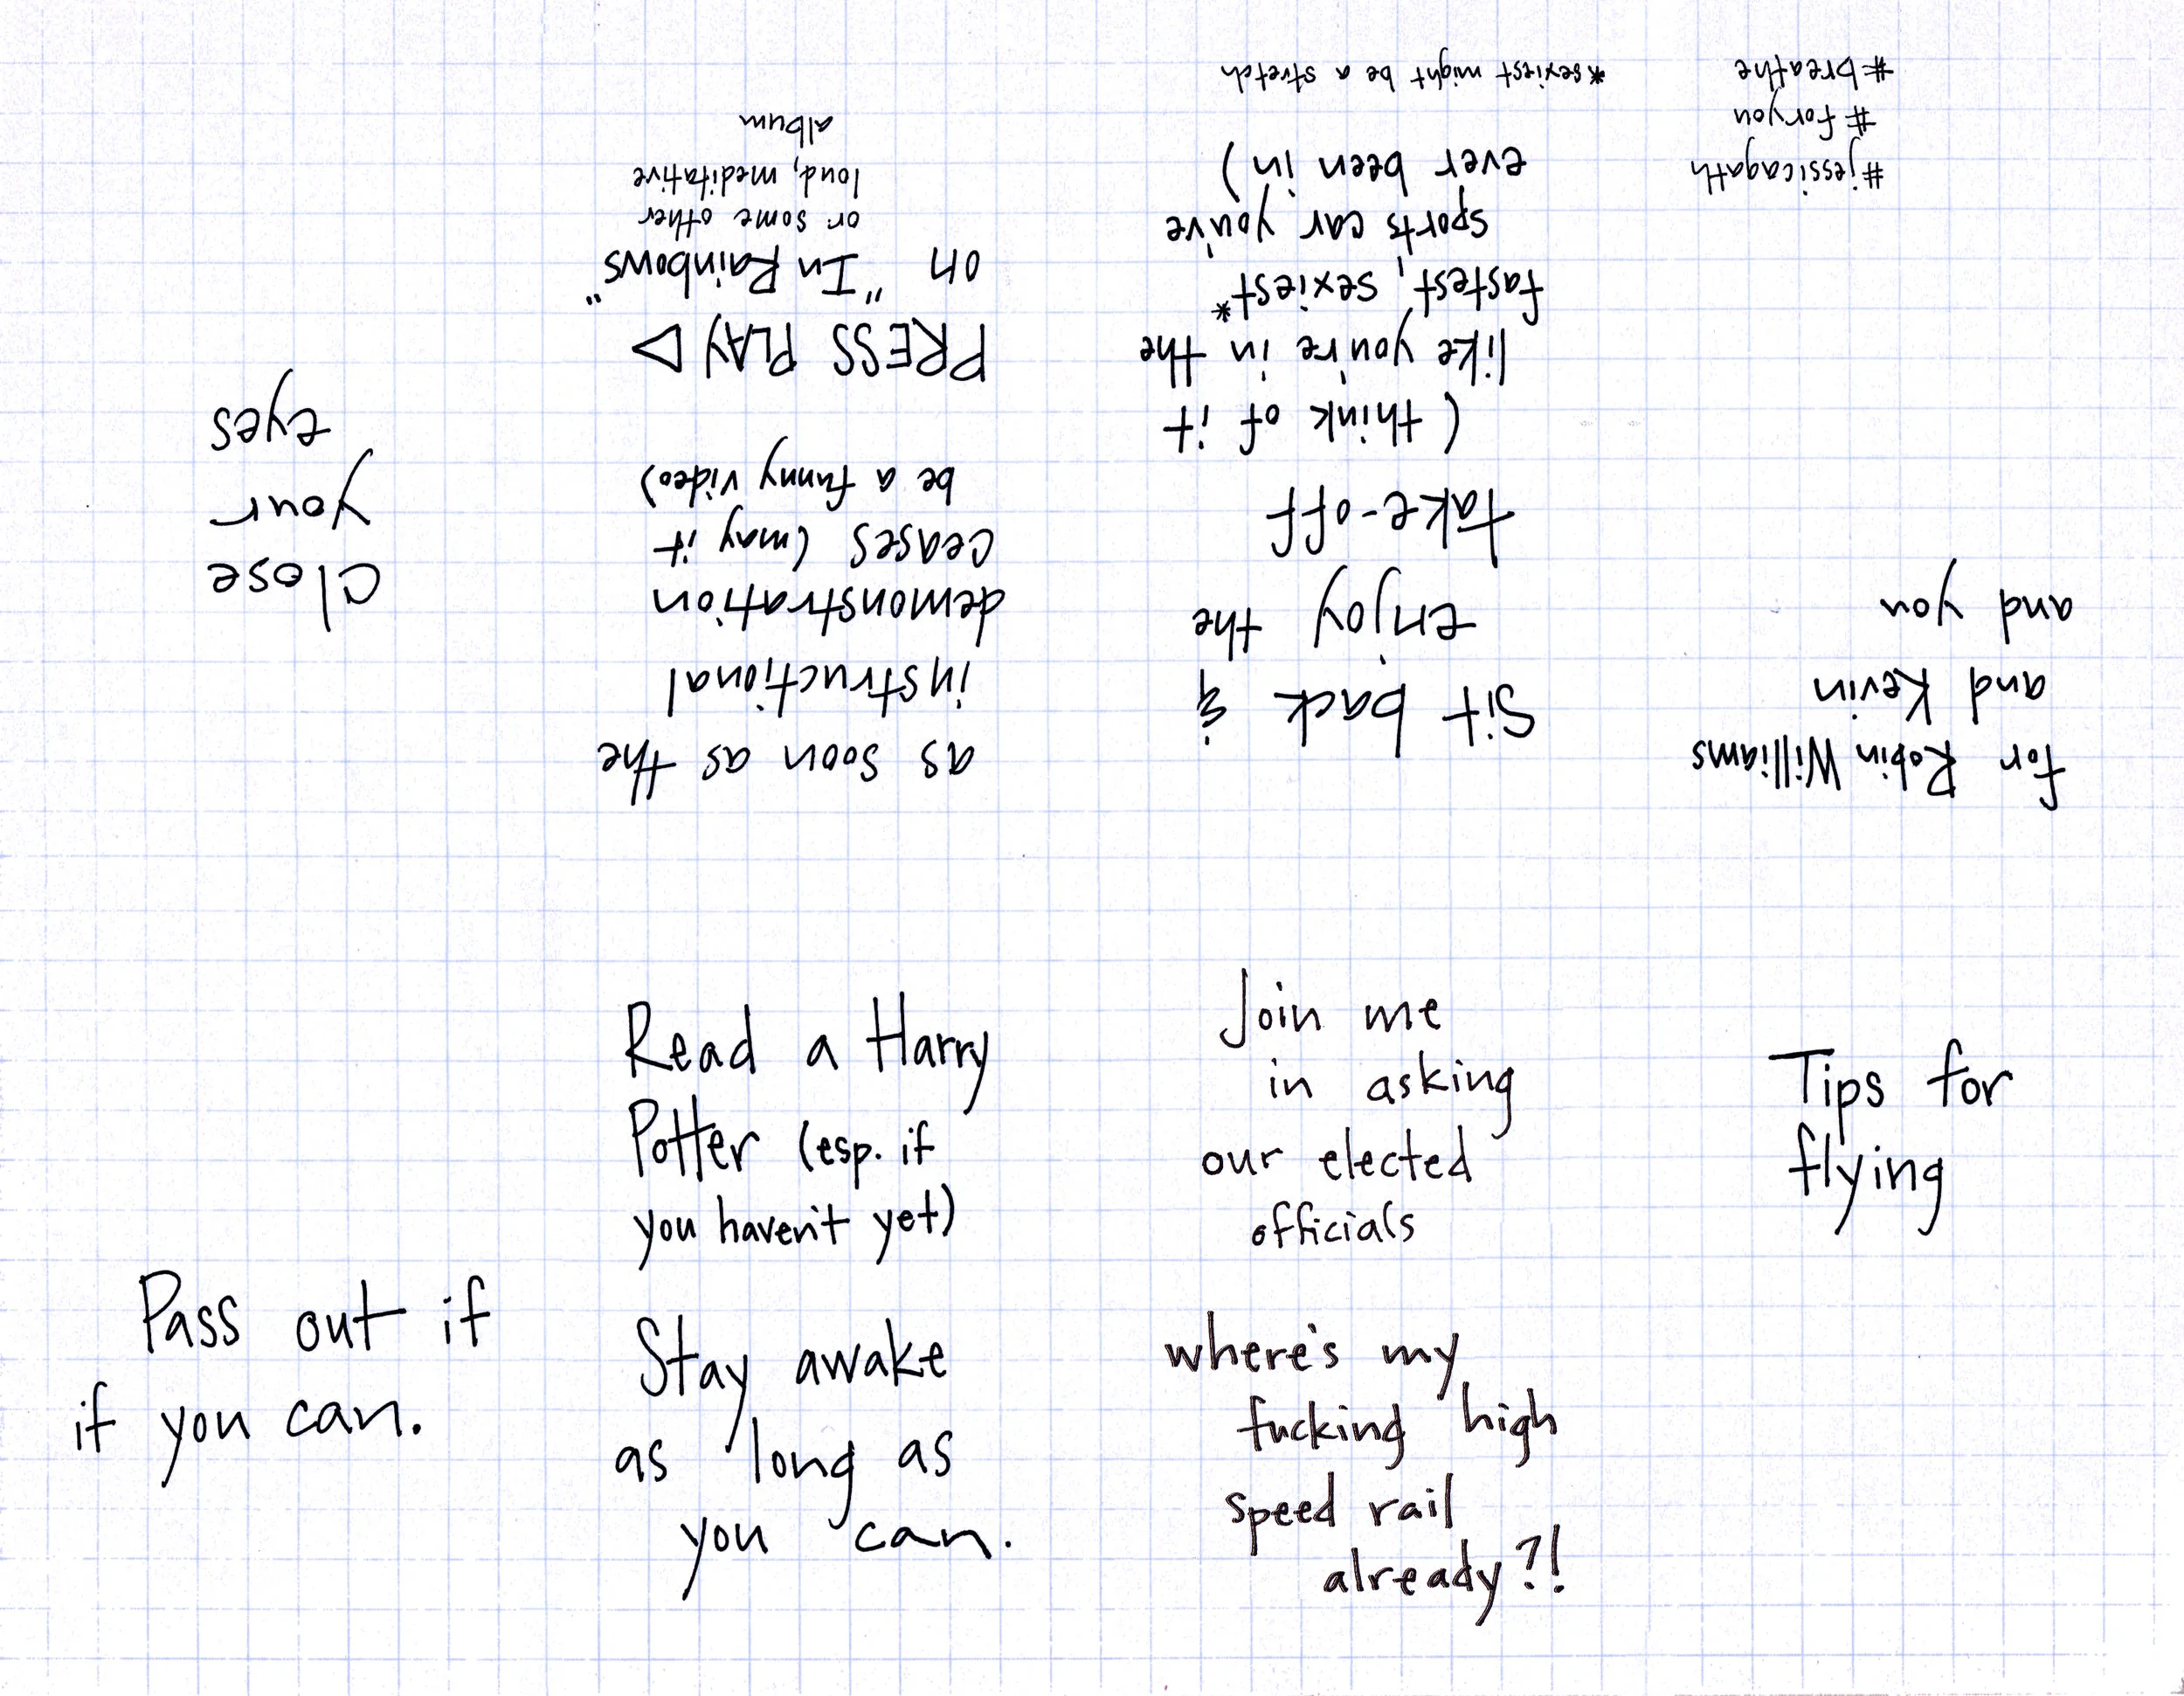 Tips for
flying
for Robin Williams
and Kevin
and you
#jessicagath
#foryou
#breathe
Sit back &
enjoy the
take-off
(think of it
like you're in the
fastest, sexiest*
sports car you've
ever been in)
*sexiest might be a stretch
as soon as the
instructional
demonstration
ceases (may it
be a funny video)
PRESS PLAY ▷
on "In Rainbows"
or some other
loud, meditative
album
close
your
eyes
Pass out if
if you can.
Read a Harry
Potter (esp. if
you haven't yet)
Stay awake
as long as
you can.
Join me
in asking
our elected
officials
where's my
fucking high
speed rail
already?!